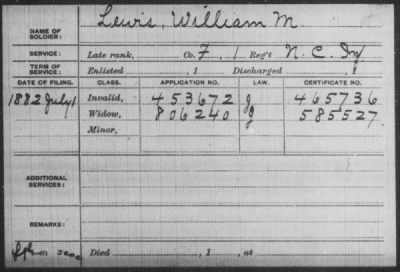 NAME OF SOLDIER: Lewis, William M.
SERVICE: Late rank, Co. F, 1 Reg't N. C. Inf
TERM OF SERVICE: Enlisted , 1 Discharged , 1
DATE OF FILING. CLASS. APPLICATION NO. LAW. CERTIFICATE NO.
1882 July 1 Invalid, 453672 J 465736
Widow, 806240 J 585527
Minor,
ADDITIONAL SERVICES:
REMARKS:
Died , 1 , at